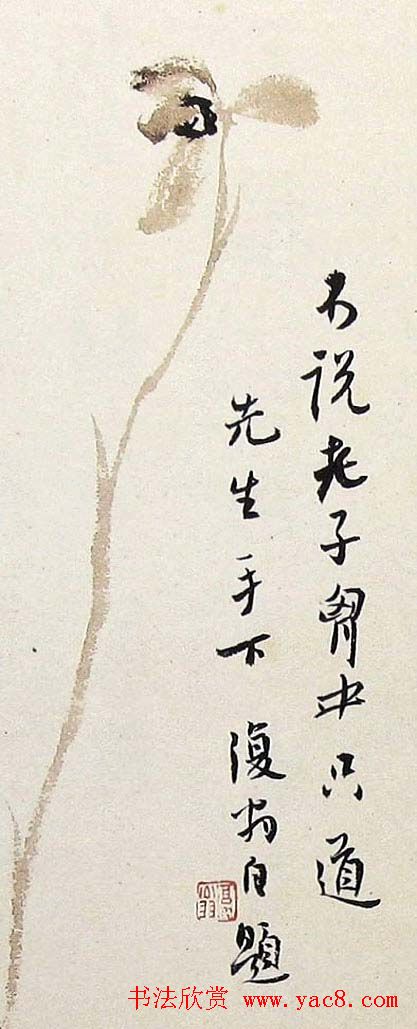 不説老子胷中只道
先生手下 復 自題
书法欣赏 www.yac8.com